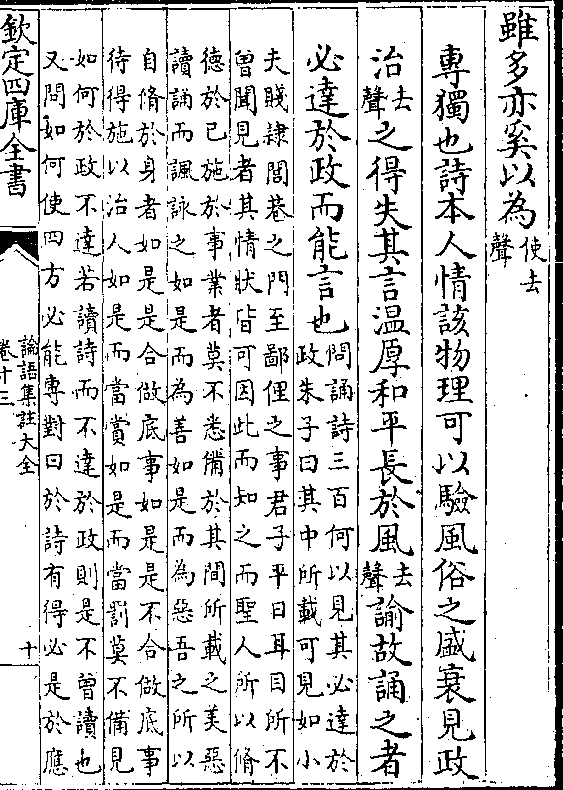 雖多亦奚以為使去聲
專獨也詩本人情該物理可以驗風俗之盛衰見政
治去聲之得失其言温厚和平長於風去聲諭故誦之者
必達於政而能言也問誦詩三百何以見其必達於
政朱子曰其中所載可見如小
夫賤隷閭巷之門至鄙俚之事君子平日耳目所不
曽聞見者其情狀皆可因此而知之而聖人所以脩
德於已施於事業者莫不悉備於其間所載之美惡
讀誦而諷詠之如是而為善如是而為惡吾之所以
自脩於身者如是是合做底事如是是不合做底事
待得施以治人如是而當賞如是而當罰莫不備見
如何於政不達若讀詩而不達於政則是不曽讀也
又問如何使四方必能專對曰於詩有得必是於應
欽定四庫全書
論語集註大全
卷十三
十